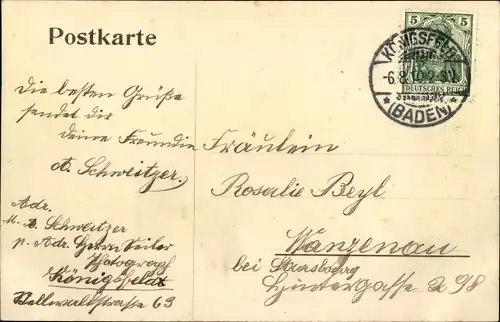 Postkarte
5 5
DEUTSCHES REICH
KÖNIGSFELD
-6.8.10.2-3N
* (BADEN) *
Die besten Grüße
sendet dir
deine Freundin
A. Schweitzer.
Adr.
M. A. Schweitzer
p. Adr. Herrn Weiler
Photograph
Königsfeld
Wellwaldstrasse 63
Fräulein
Rosalie Beyl
Wanzenau
bei Strassburg
Hintergasse 98